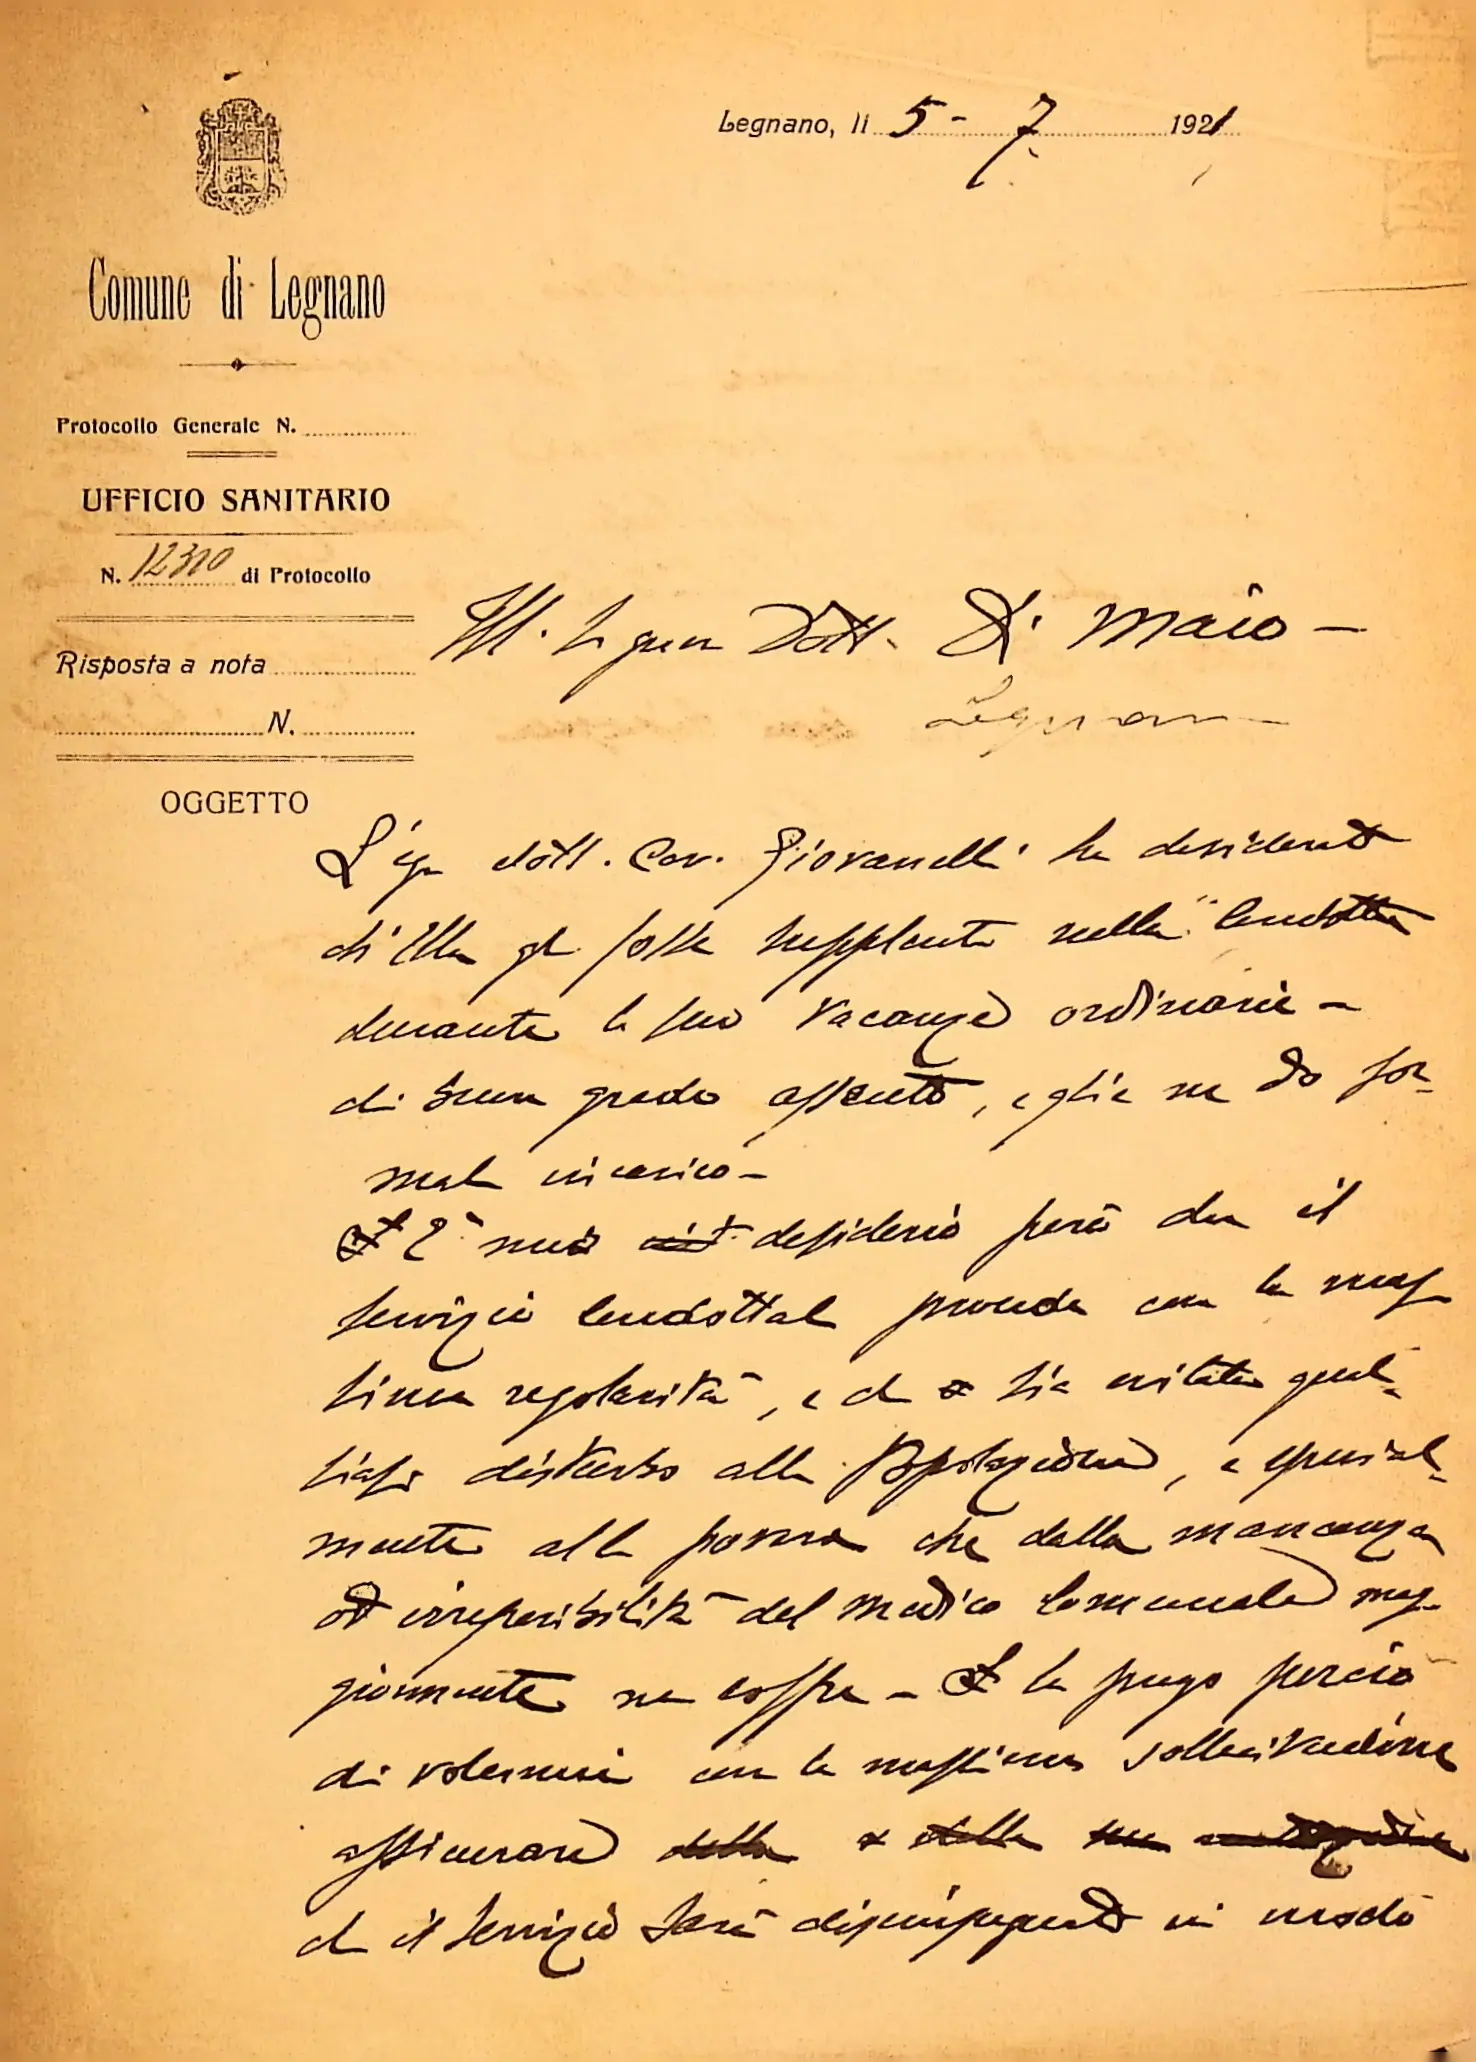 Legnano, li 5-7 1921
Comune di Legnano
Protocollo Generale N.
UFFICIO SANITARIO
N. 12310 di Protocollo
Ill. Signor Dott. Di Maio -
Risposta a nota
Legnano
N.
OGGETTO
dott. Cav. Giovanelli ha desiderato
ch'Ella gli fosse supplente nella Condotta
durante le sue vacanze ordinarie -
di buon grado assento, e gliene do for-
male incarico -
È mio desiderio però che il
servizio condottale proceda con la mas
sima regolarità, e che sia evitato qual-
siasi disturbo alla Popolazione, e special-
mente alla povera che dalla mancanza
od irreperibilità del medico Comunale mag-
giormente ne soffre - La prego perciò
di volermi con la massima sollecitudine
assicurare della della
che il servizio sarà disimpegnato in modo